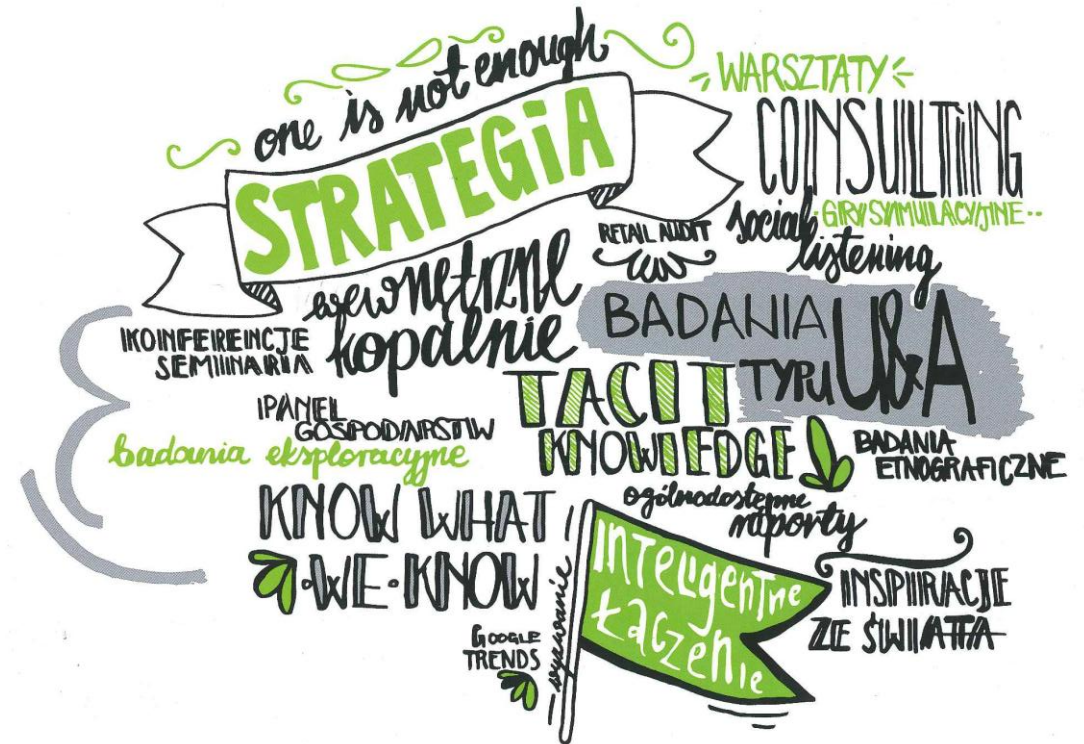 one is not enough
STRATEGIA
WARSZTATY
CONSULTING
GRY SYMULACYJNE
RETAIL AUDIT
social
listening
wewnętrzne
kopalnie
BADANIA
TYPU U&A
KONFERENCJE
SEMINARIA
TACIT
KNOWLEDGE
PANEL
GOSPODARSTW
badania eksploracyjne
BADANIA
ETNOGRAFICZNE
ogólnodostępne
raporty
KNOW WHAT
WE KNOW
INTELIGENTNE
ŁĄCZENIE
INSPIRACJE
ZE ŚWIATA
GOOGLE
TRENDS